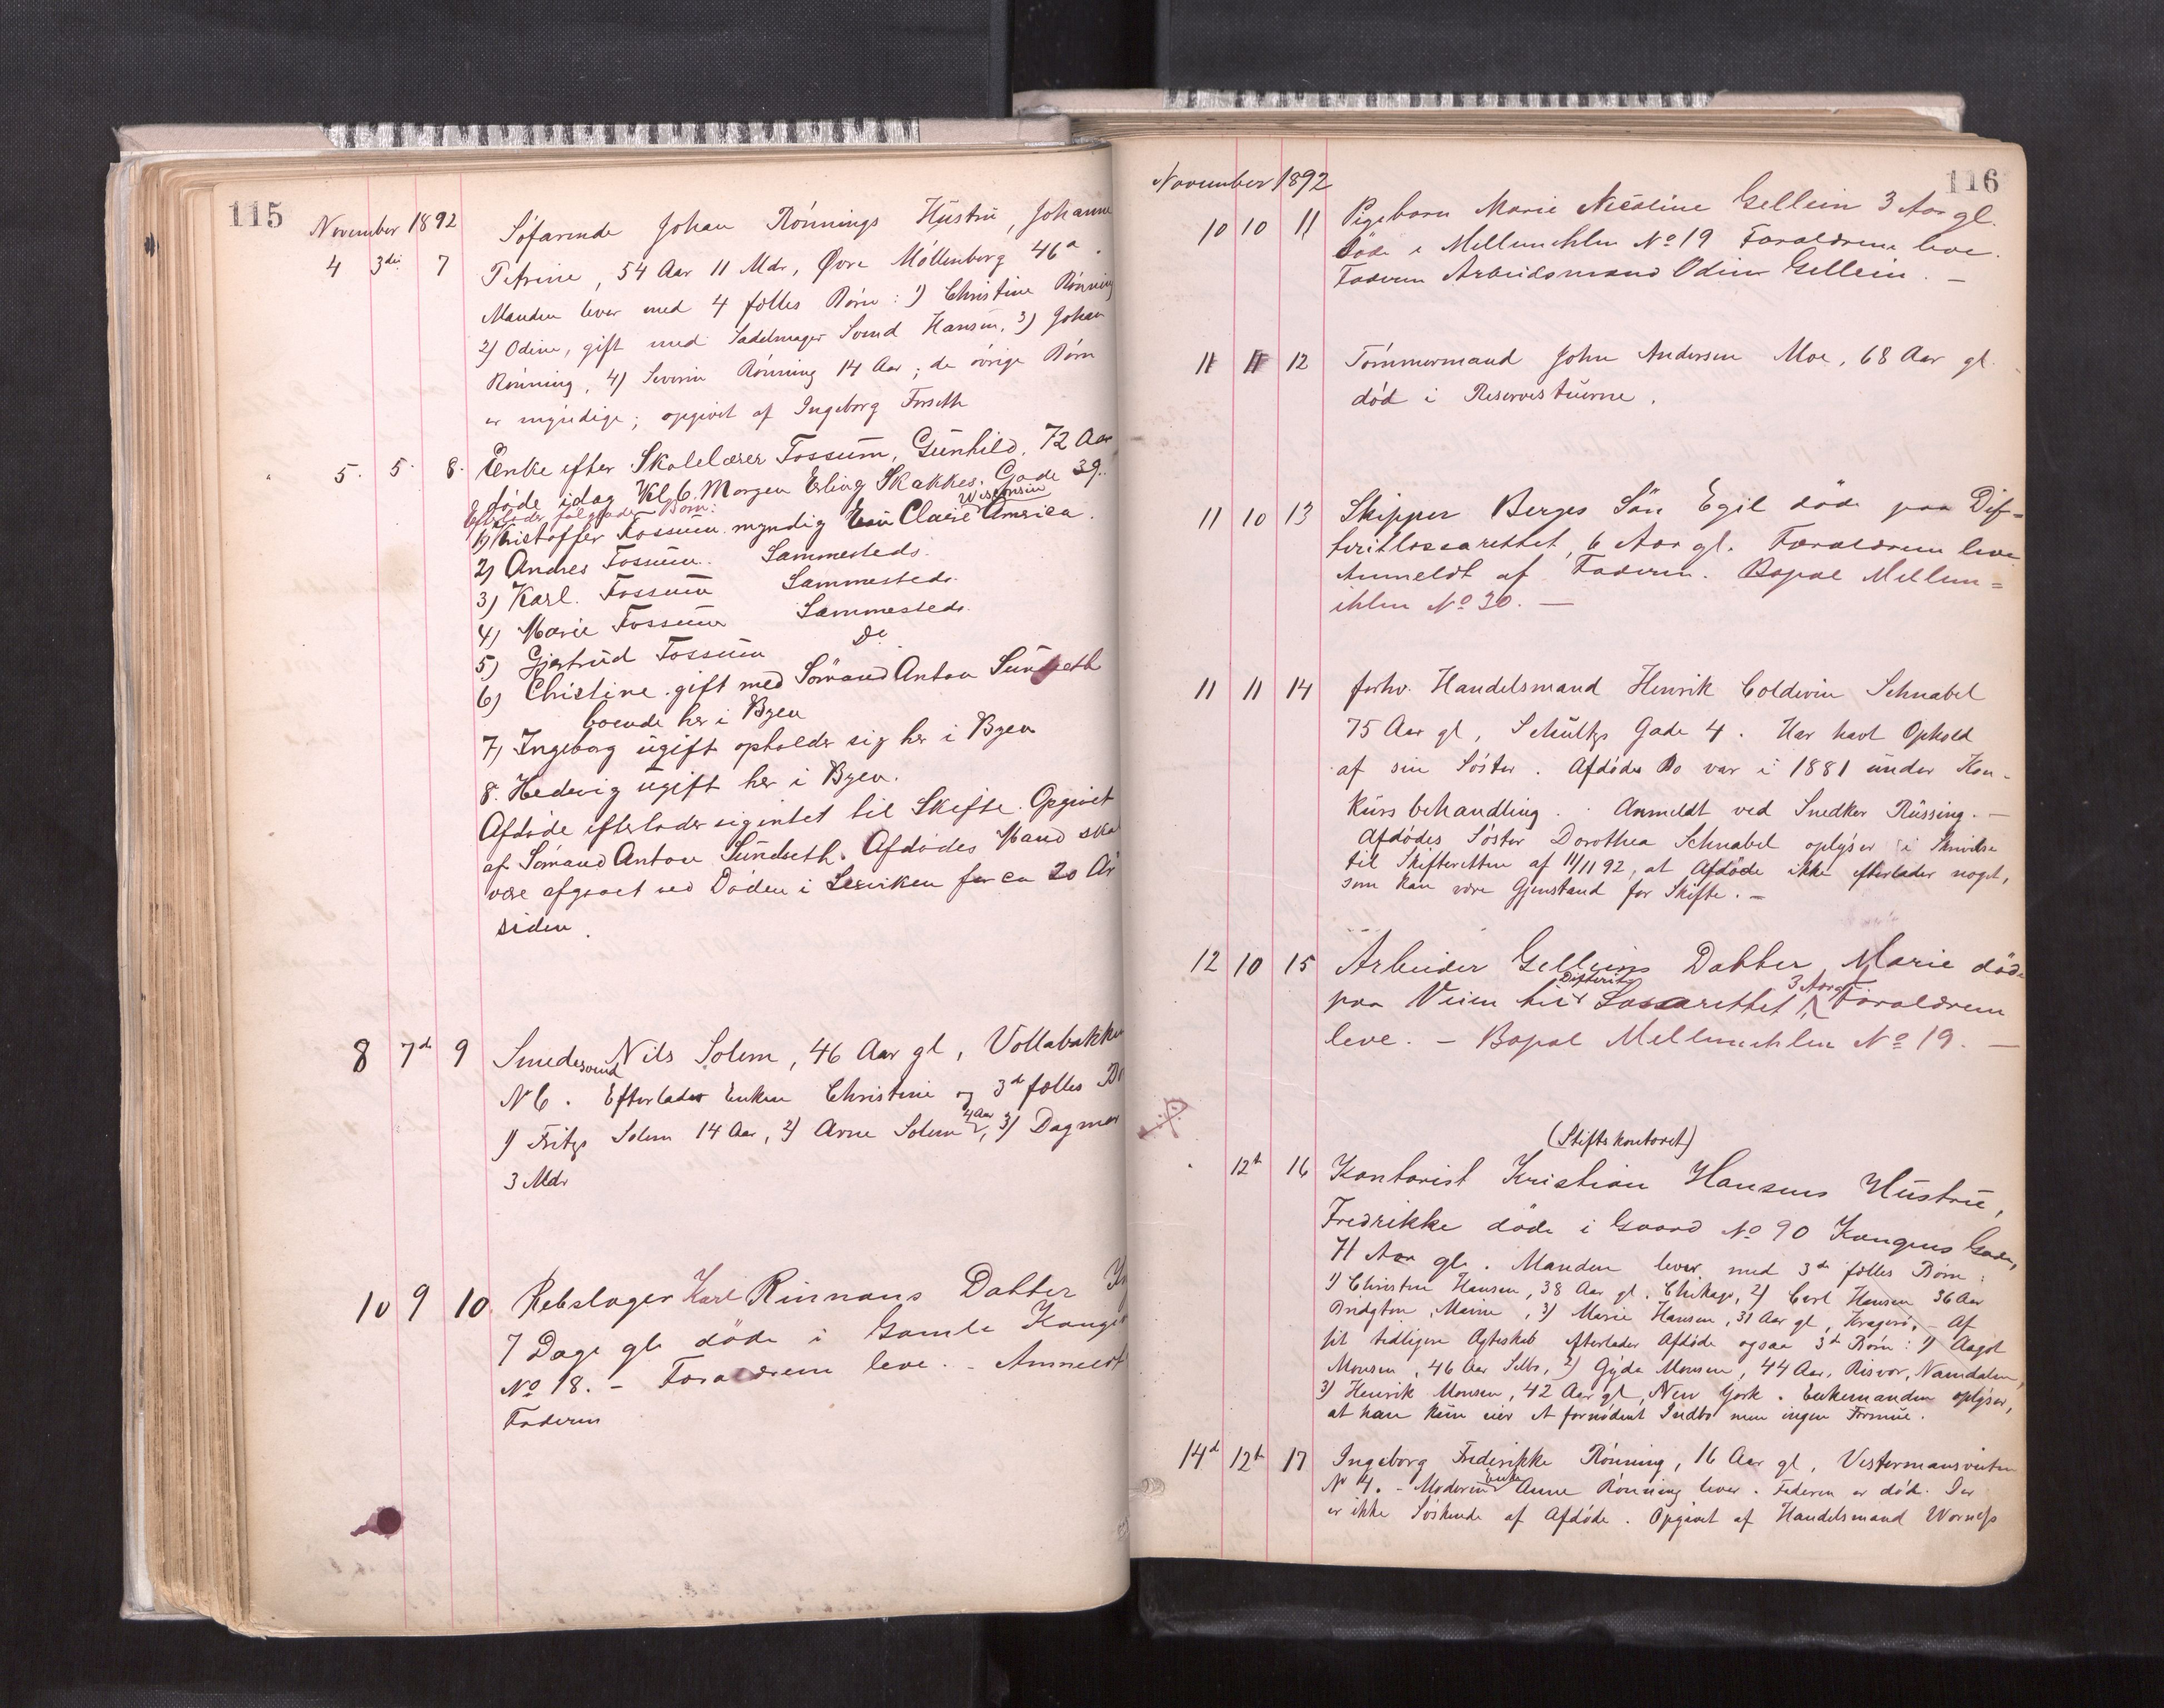 115
November 1892
4 3die 7 Søfarende Johan Rønnings Hustru, Johanne
Petrine, 54 Aar 11 Mdr, Øvre Møllenberg 46a.
Manden lever med 4 fælles Børn: 1) Christine Rønning
2) Odine, gift med Sadelmager Svend Hansen, 3) Johan
Rønning, 4) Severin Rønning 14 Aar; de øvrige Børn
er myndige; opgivet af Ingeborg Forseth
5. 5. 8. Enke efter Skolelærer Fossum, Gunhild, 72 Aar
døde idag Kl 6. Morgen Erling Skakkes. Gade 39.
Efterlader følgende Børn:
Wisconsin
1) Kristoffer Fossum myndig Eau Claire America.
2) Andres Fossum. Sammesteds.
3) Karl. Fossum Sammesteds.
4) Marie Fossum Sammesteds.
5) Gjertrud Fossum Do
6) Christine. gift med Sømand Anton Sundseth
boende her i Byen
7) Ingeborg ugift opholder sig her i Byen
8. Hedevig ugift her i Byen.
Afdøde efterlader sig intet til Skifte. Opgivet
af Sømand Anton Sundseth. Afdødes Mand skal
være afgaaet ved Døden i Lerviken for ca 20 År
siden.
8 7de 9 Smedesvend Nils Solem, 46 Aar gl, Vollabakken
N 6. Efterlader Enken Christine og 3de fælles
1) Fritz Solem 14 Aar, 2) Arne Solem 4 Aar, 3) Dagmar
3 Mdr
10 9 10. Rebslager Karl Rinnans Datter
7 Dage gl. døde i Gamle
No 18. – Forældrene leve. – Anmeldt
Faderen
116
November 1892
10 10 11 Pigebarn Marie Nicoline Gellein 3 Aar gl.
døde i Mellemihlen No 19 Forældrene leve.
Faderen Arbeidsmand Odin Gellein. –
11 11 12 Tømmermand John Andersen Moe, 68 Aar gl.
død i Reservestuerne.
11 10 13 Skipper Berges Søn Egil døde paa Dif=
teritlassarettet, 6 Aar gl. Forældrene leve
Anmeldt af Faderen. Bopæl Mellem=
ihlen No 30. –
11 11 14 forhv. Handelsmand Henrik Coldevin Schnabel
75 Aar gl, Schultzs Gade 4. Har havt Ophold
af sin Søster. Afdødes Bo var i 1881 under Kon-
kursbehandling. Anmeldt ved Snedker Rüssing. –
Afdødes Søster Dorothea Schnabel oplyser i Skrivelse
til Skifteretten af 11/11 92, at Afdøde ikke efterlader noget,
som kan være Gjenstand for Skifte. –
12 10 15 Arbeider Gelleins Datter Marie døde
paa Difterit Lassarettet, 3 Aar gl. Forældrene
leve. – Bopæl Mellemihlen No 19. –
(Stiftskontoret)
12te 16 Kontorist Kristian Hansens Hustru,
Fredrikke døde i Gaard No 90 Kongens Gade,
71 Aar gl. Manden lever med 3de fælles Børn:
1) Christine Hansen, 38 Aar gl. Chikago, 2) Carl Hansen 36 Aar
Bridgton, Maine, 3) Marie Hansen, 31 Aar gl, Kragerø. – Af
sit tidligere Ægteskab efterlader Afdøde ogsaa 3de Børn: 1) Aagot
Monsen, 46 Aar Selbo, 2) Gyda Monsen, 44 Aar, Risvær, Namdalen,
3) Henrik Monsen, 42 Aar gl, New York. Enkemanden oplyser,
at han kun eier et fornødent Indbo men ingen Formue.
14d 12te 17 Ingeborg Frederikke Rønning, 16 Aar gl, Vestermansveiten
No 4. – Moderen Enke Anne Rønning lever. Faderen er død. Der
er ikke Søskende af Afdøde. Opgivet af Handelsmand